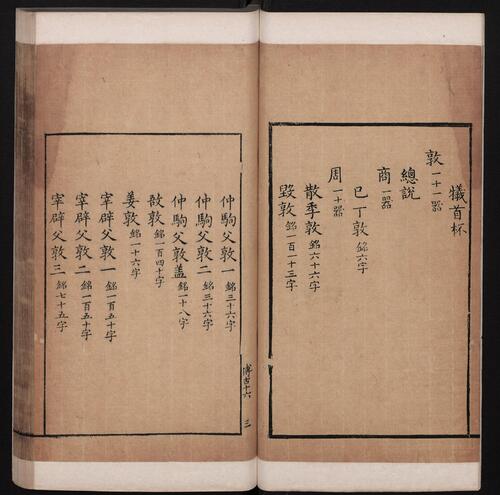 犧首杯
敦一十一器
總說
商一器
己丁敦銘六字
周一十器
散季敦銘六十六字
毀敦銘一百一十三字
仲駒父敦一銘三十六字
仲駒父敦二銘三十六字
仲駒父敦蓋銘一十八字
敔敦銘一百四十字
姜敦銘一十六字
宰辟父敦一銘一百五十字
宰辟父敦二銘一百五十字
宰辟父敦三銘七十五字
博古十六 三